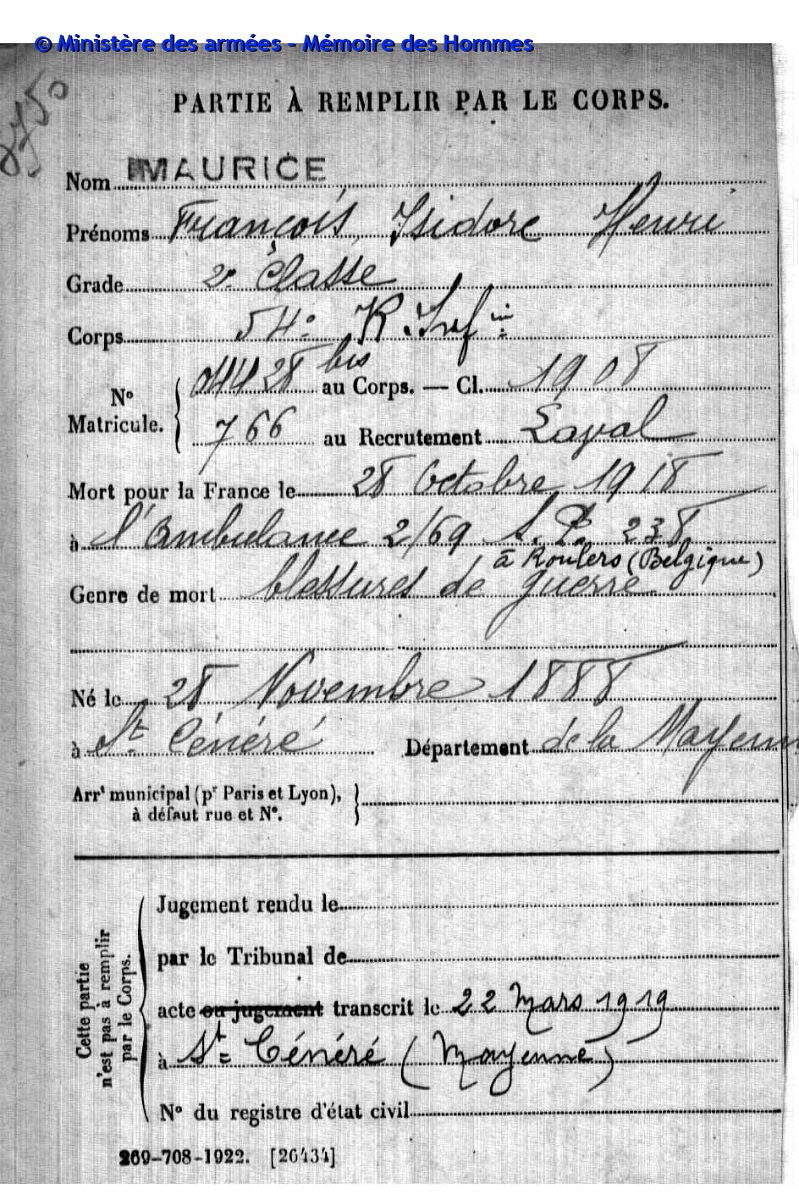 © Ministère des armées - Mémoire des Hommes
PARTIE À REMPLIR PAR LE CORPS.
Nom MAURICE
Prénoms François Isidore Henri
Grade 2e Classe
Corps 54e R. Infie
No Matricule. { 04428 bis au Corps. — Cl. 1908
766 au Recrutement Laval
Mort pour la France le 28 Octobre 1918
à l'Ambulance 2/69 S. P. 238
à Roulers (Belgique)
Genre de mort blessures de guerre
Né le 28 Novembre 1888
à St Cénéré Département de la Mayenne
Arrt municipal (pr Paris et Lyon), }
à défaut rue et No.
Cette partie n'est pas à remplir par le Corps.
Jugement rendu le
par le Tribunal de
acte ou jugement transcrit le 22 Mars 1919
à St Cénéré (Mayenne)
No du registre d'état civil
269-708-1922. [26434]